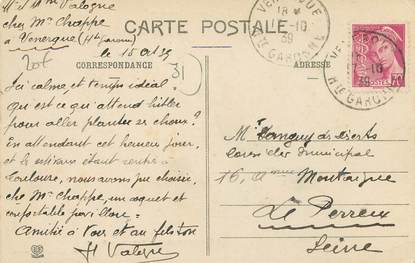 M & Mme Valogne
chez Mr Chappe
à Venerque (Hte Garonne)
le 15 Oct 39
CARTE POSTALE
CORRESPONDANCE
ADRESSE
206
31
VENERQUE
18 *
-10
39
Hte GARONNE
10
39
Hte GARONNE
POSTES
Ici calme et temps idéal.
Qu'est ce qui attend
pour aller planter ses choux?
En attendant cet heureux jour,
et le étant centré à
Toulouse, nous avons pu choisir,
chez Mr Chappe, un coquet et
confortable pavillon.
Amitié à Vous et au fiston
H Valogne
Mr
Municipal
16, Montaigne
Le Perreux
Seine